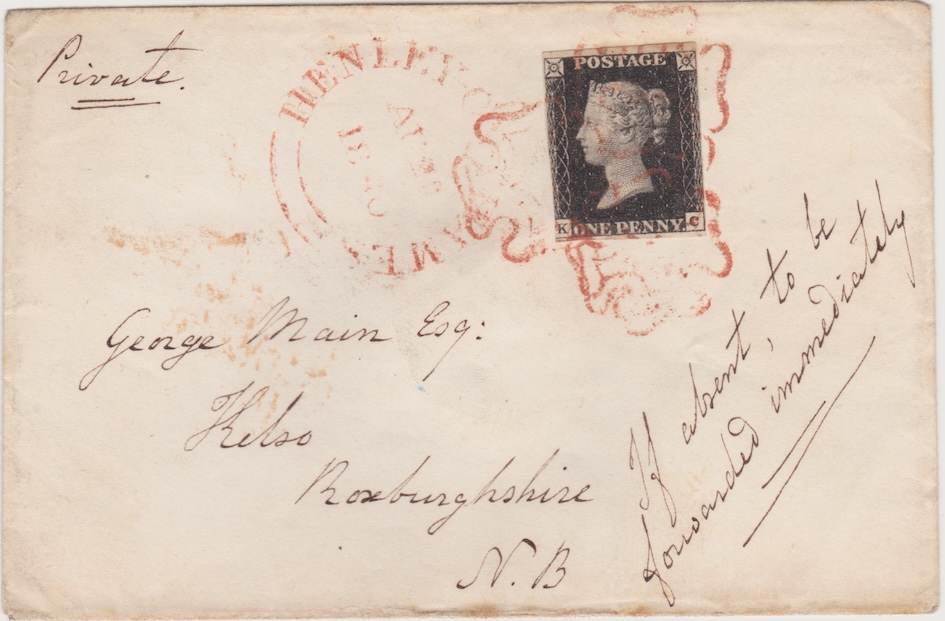 Private.
HENLEY
AU
18
POSTAGE
K ONE PENNY. C
George Main Esq:
Kelso
Roxburghshire
N.B
If absent, to be
forwarded immediately